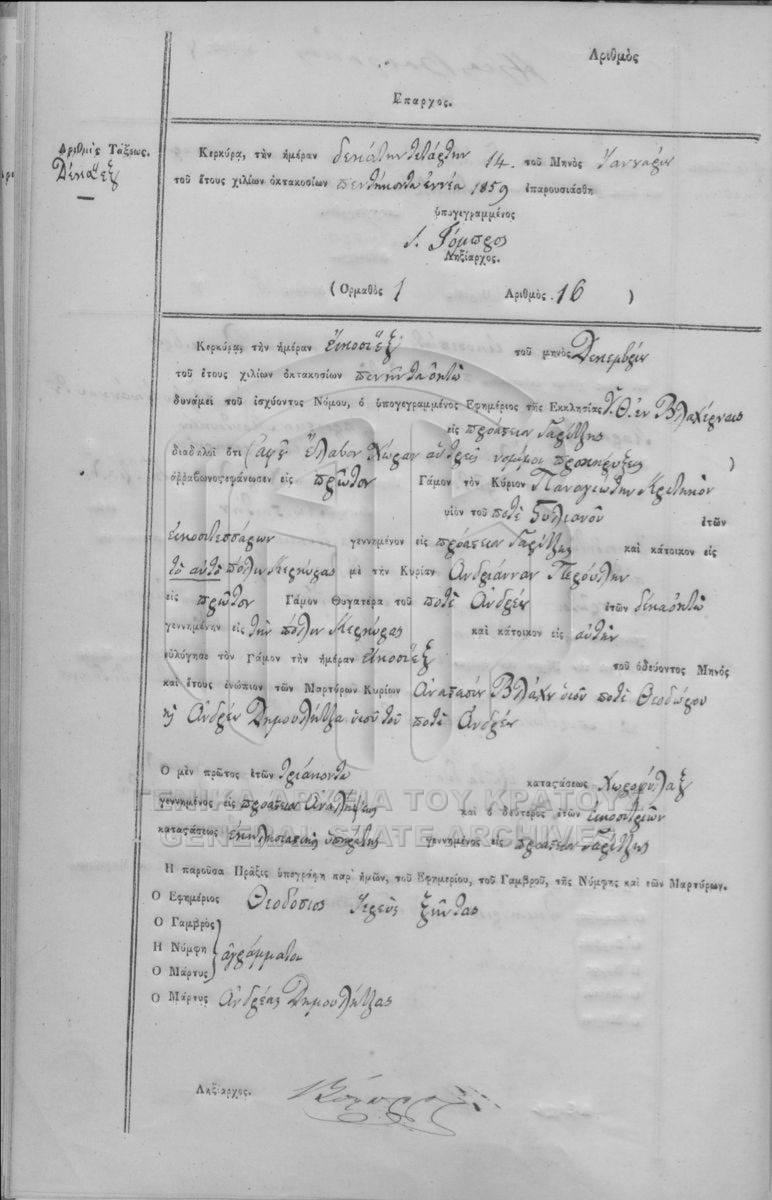 Αριθμὸς
Επαρχος.
Αριθμὸς Τάξεως.
Δέκα ἕξ
Κερκύρᾳ, τὴν ἡμέραν δεκάτην τετάρτην 14. τοῦ Μηνὸς Ἰαννουαρίου
τοῦ ἔτους χιλίων ὀκτακοσίων πεντήκοντα ἐννέα 1859 ἐπαρουσιάσθη
ὑπογεγραμμένος
Ληξίαρχος.
(Ορμαθὸς 1 Αριθμὸς 16 )
Κερκύρᾳ, τὴν ἡμέραν Εἴκοσι ἕξ τοῦ μηνὸς Δεκεμβρίου
τοῦ ἔτους χιλίων ὀκτακοσίων πενῆντα ὀκτὼ
δυνάμει τοῦ ἰσχύοντος Νόμου, ὁ ὑπογεγραμμένος Εφημέριος τῆς Εκκλησίας Ὑ. Θ. ἐν Βλαχέρναις
εἰς προάστειον Γαρίτζης
διαδηλοῖ ὅτι (ἀφ' οὗ ἔλαβον χώραν αἱ τρεῖς νόμιμοι προκηρύξεις )
ἀρραβωνοςεφάνωσεν εἰς πρῶτον Γάμον τὸν Κύριον Παναγιώτην Κρητικὸν
υἱὸν τοῦ ποτὲ Στυλιανοῦ ἐτῶν
εἰκοσιτεσσάρων γεννημένον εἰς προάστειον Γαρίτζης καὶ κάτοικον εἰς
τὸ αὐτὸ πόλιν Κερκύρας μὲ τὴν Κυρίαν Ἀνδριάνναν Περούλην
εἰς πρῶτον Γάμον Θυγατέρα τοῦ ποτὲ Ἀνδρέα ἐτῶν δεκαοκτὼ
γεννημένην εἰς τὴν πόλιν Κερκύρας καὶ κάτοικον εἰς αὐτὴν
εὐλόγησε τὸν Γάμον τὴν ἡμέραν εἴκοσι ἕξ τοῦ ὁδεύοντος Μηνὸς
καὶ ἔτους ἐνώπιον τῶν Μαρτύρων Κυρίων Ἀναστασίου Βλάχου υἱοῦ ποτὲ Θεοδώρου
καὶ Ἀνδρέα Δημουλήτζα υἱοῦ τοῦ ποτὲ Ἀνδρέα
Ο μὲν πρῶτος ἐτῶν τριάκοντα καταςάσεως Χωροφύλαξ
γεννημένος εἰς προάστειον Ἀναλήψεως καὶ ὁ δεύτερος ἐτῶν εἰκοσιτριῶν
καταςάσεως ἐκκλησιαστικὸς ὑπηρέτης γεννημένος εἰς προάστειον Γαρίτζης
ΓΕΝΙΚΑ ΑΡΧΕΙΑ ΤΟΥ ΚΡΑΤΟΥΣ
GENERAL STATE ARCHIVES
Η παροῦσα Πρᾶξις ὑπεγράφη παρ' ἡμῶν, τοῦ Εφημερίου, τοῦ Γαμβροῦ, τῆς Νύμφης καὶ τῶν Μαρτύρων.
Ο Εφημέριος Θεοδόσιος Ἱερεὺς
Ο Γαμβρὸς
Η Νύμφη ἀγράμματοι
Ο Μάρτυς
Ο Μάρτυς Ἀνδρέας Δημουλήτζας
Ληξίαρχος.